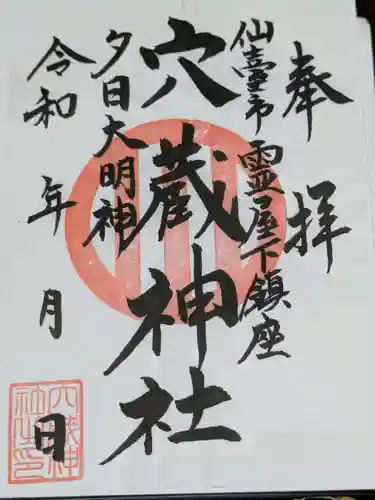 奉拝
仙臺市霊屋下鎮座
穴蔵神社
夕日大明神
令和 年 月 日
穴蔵神社之印